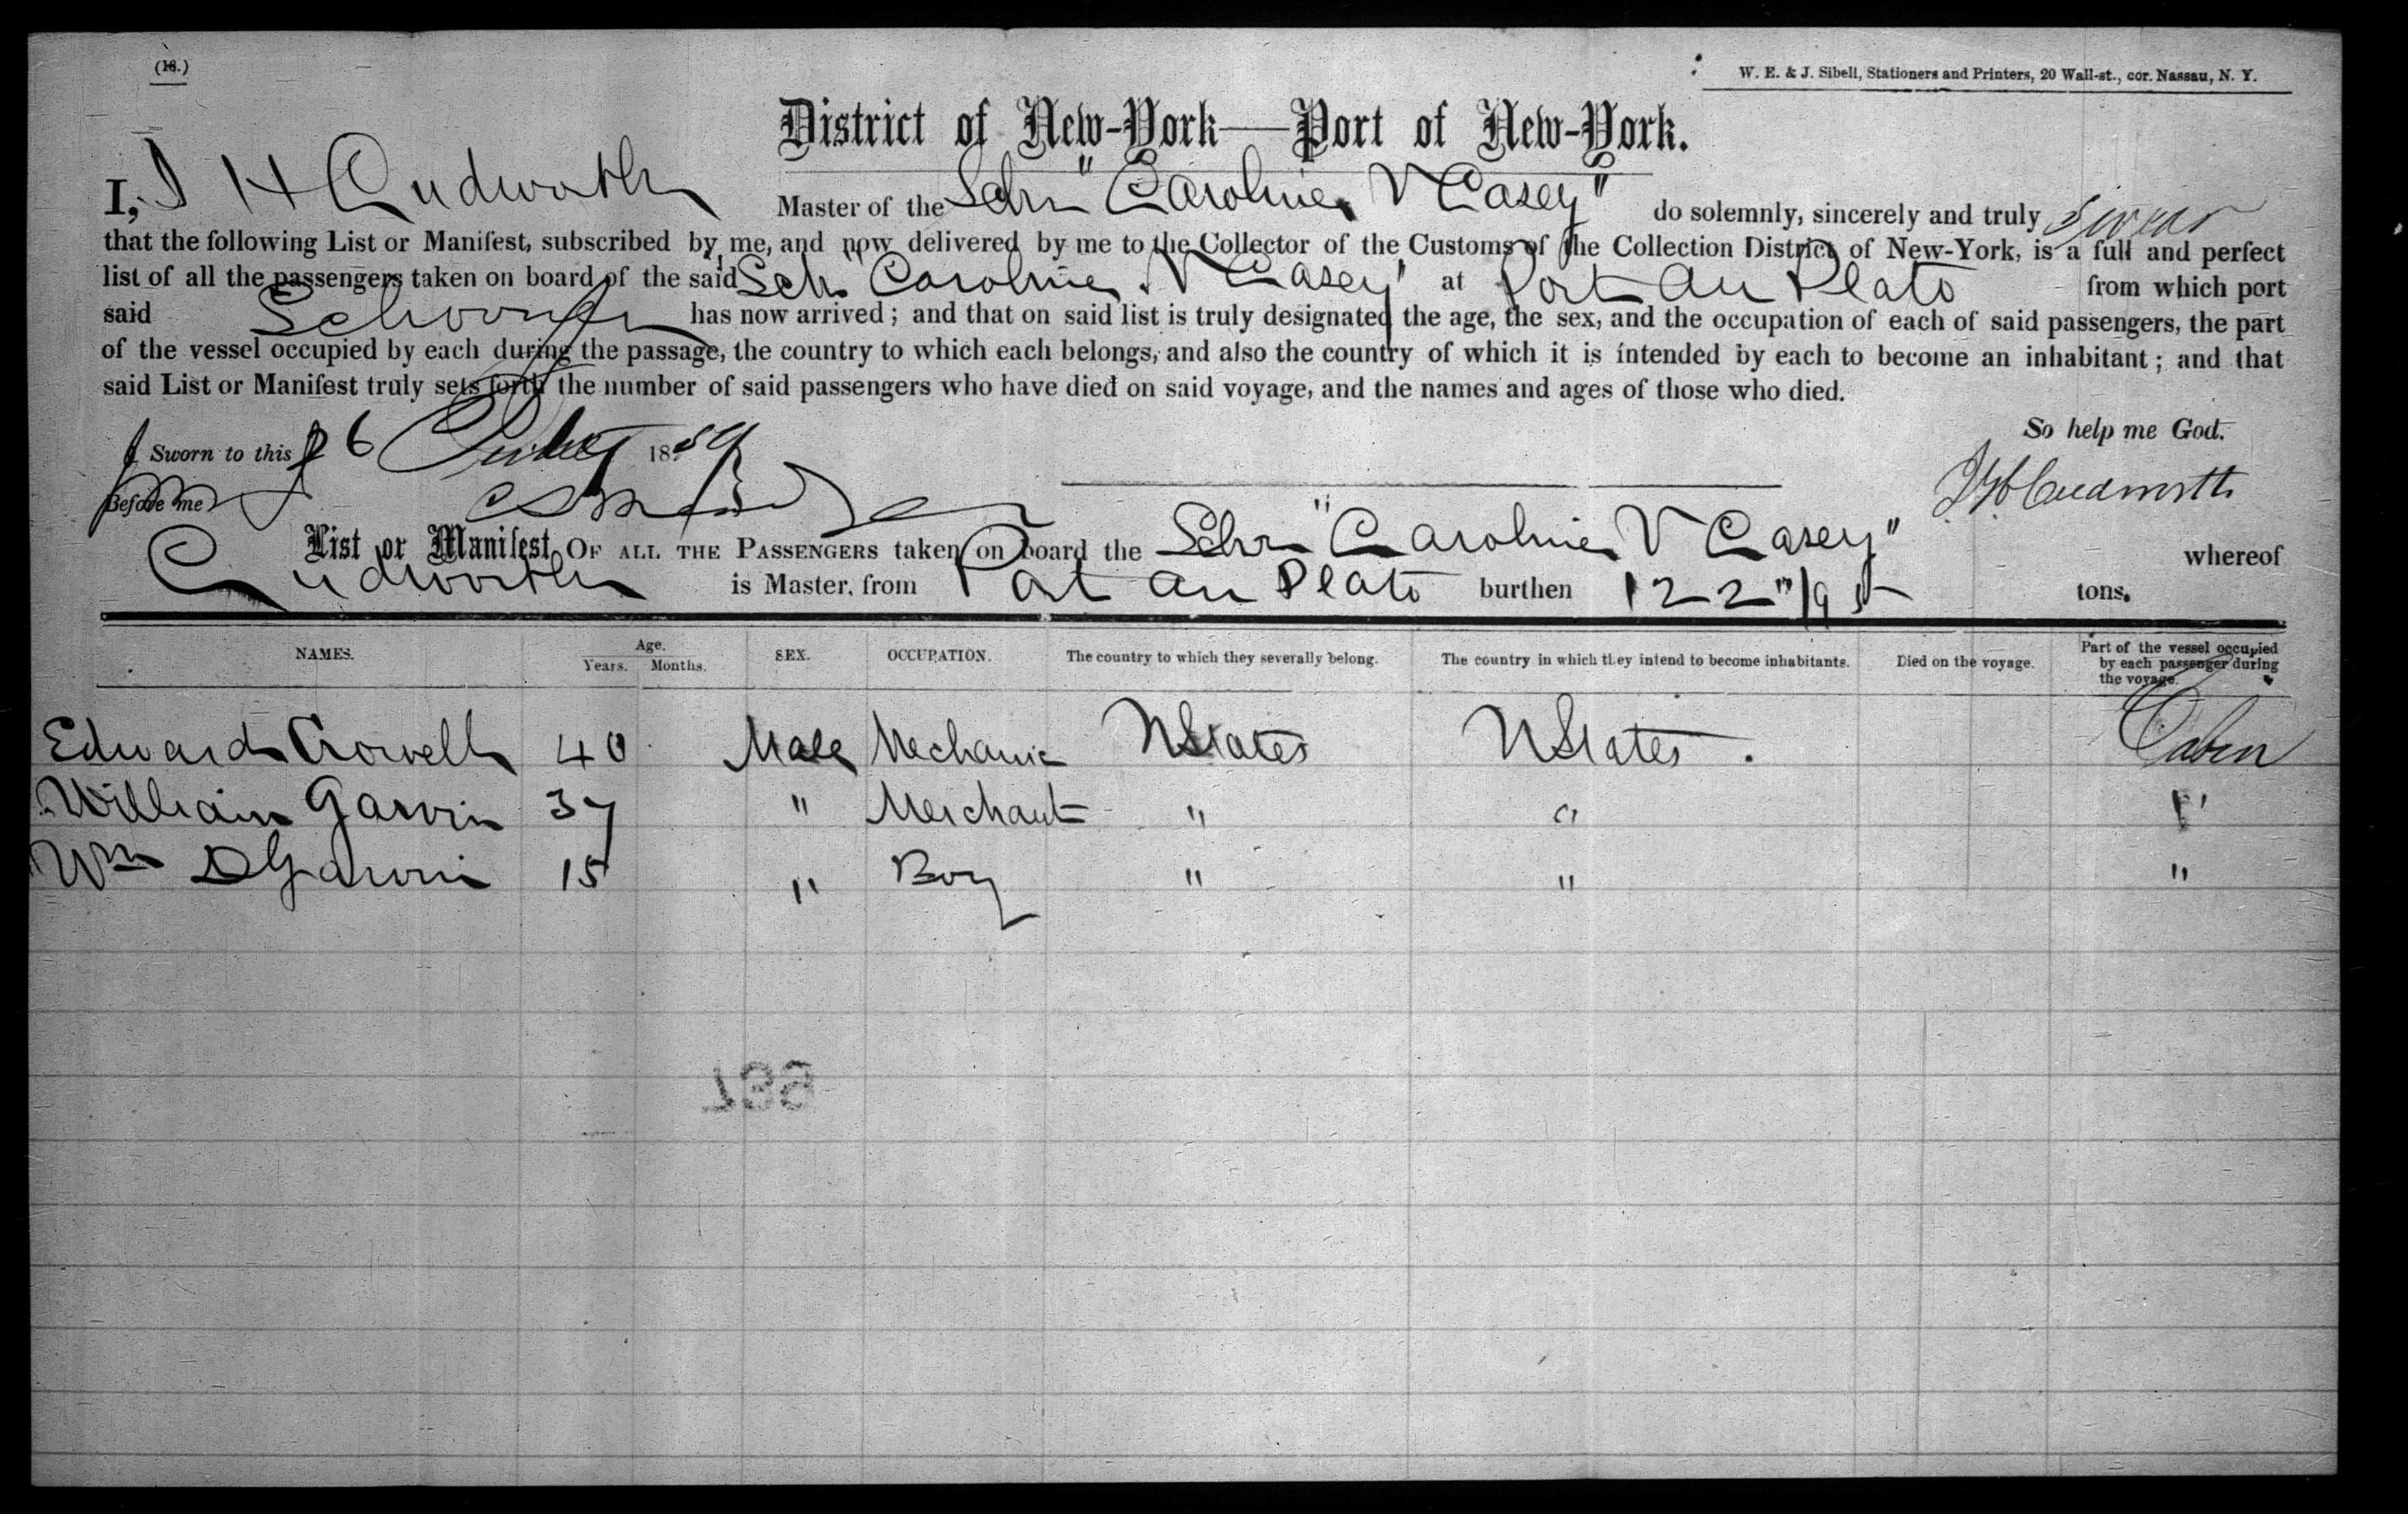 (18.)
W. E. & J. Sibell, Stationers and Printers, 20 Wall-st., cor. Nassau, N. Y.
District of New-York—Port of New-York.
I, J H Cudworth Master of the Schr "Caroline V Casey" do solemnly, sincerely and truly swear
that the following List or Manifest, subscribed by me, and now delivered by me to the Collector of the Customs of the Collection District of New-York, is a full and perfect
list of all the passengers taken on board of the said Sch "Caroline V Casey" at Port au Plato from which port
said Schooner has now arrived; and that on said list is truly designated the age, the sex, and the occupation of each of said passengers, the part
of the vessel occupied by each during the passage, the country to which each belongs, and also the country of which it is intended by each to become an inhabitant; and that
said List or Manifest truly sets forth the number of said passengers who have died on said voyage, and the names and ages of those who died.
So help me God.
Sworn to this 26 1859
Before me
J H Cudworth
List or Manifest OF ALL THE PASSENGERS taken on board the Schr "Caroline V Casey" whereof
Cudworth is Master, from Port au Plato burthen 122 "/95 tons.
NAMES. Age. Years. Months. SEX. OCCUPATION. The country to which they severally belong. The country in which they intend to become inhabitants. Died on the voyage. Part of the vessel occupied by each passenger during the voyage.
Edward Crowell 40 Male Mechanic U States U States. Cabin
William Garvin 37 " Merchant " " "
Wm D Garvin 15 " Boy " " "